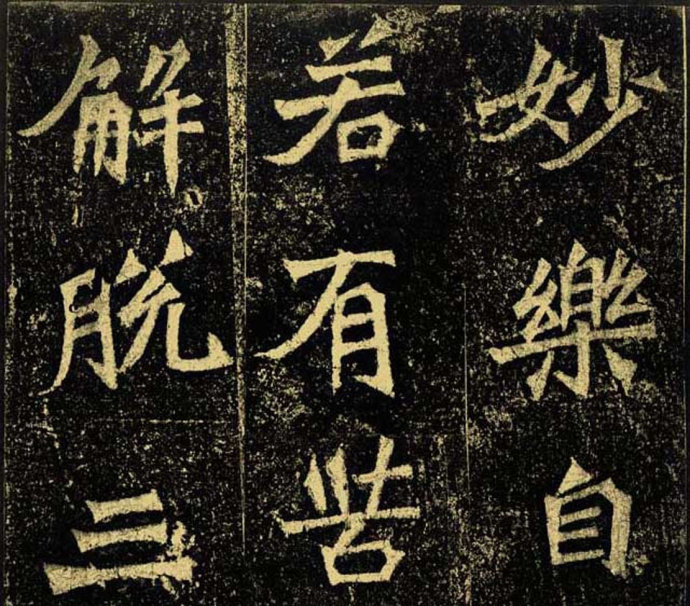 妙樂自
若有苦
解脫三